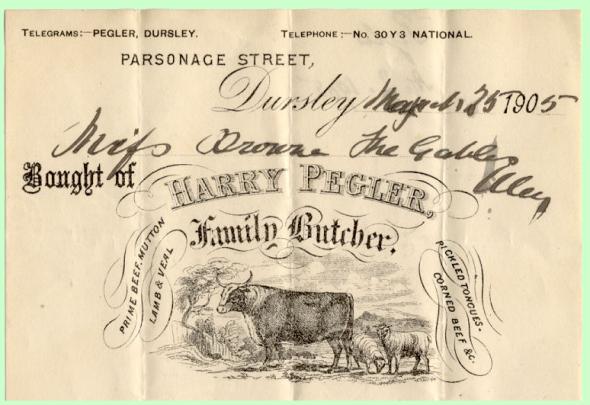 TELEGRAMS:—PEGLER, DURSLEY. TELEPHONE:—No. 30Y3 NATIONAL.
PARSONAGE STREET,
Dursley March 25 1905
Miss Browne The Gables
Bought of
HARRY PEGLER,
Family Butcher.
PRIME BEEF, MUTTON
LAMB & VEAL
PICKLED TONGUES.
CORNED BEEF &C.